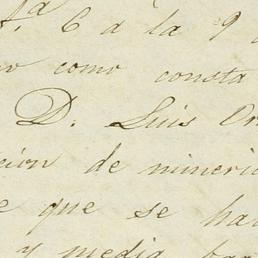 6 a la 9
como consta
D. Luis
de mineri
que se ha
y media